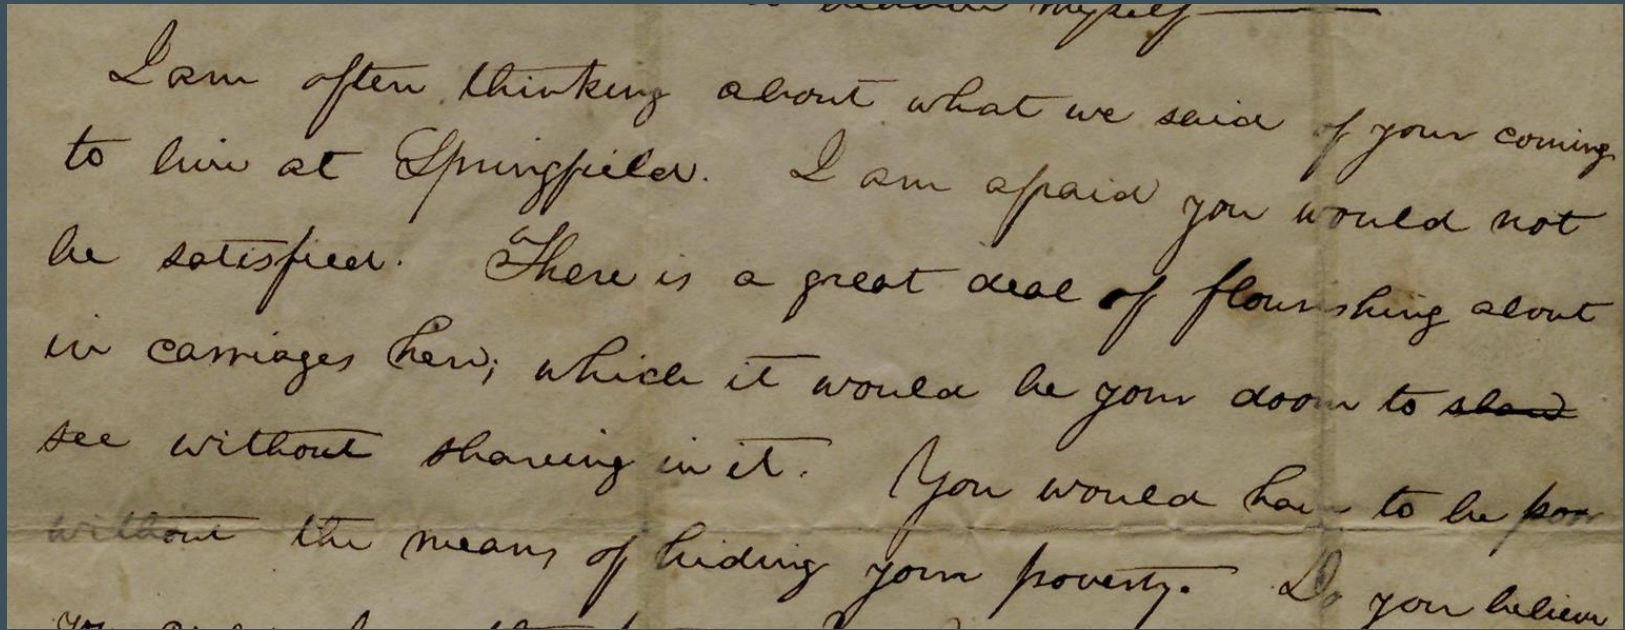 myself
I am often thinking about what we said of your coming
to live at Springfield. I am afraid you would not
be satisfied. There is a great deal of flourishing about
in carriages here; which it would be your doom to
see without sharing in it. You would have to be poor
without the means of hiding your poverty. Do you believe
you